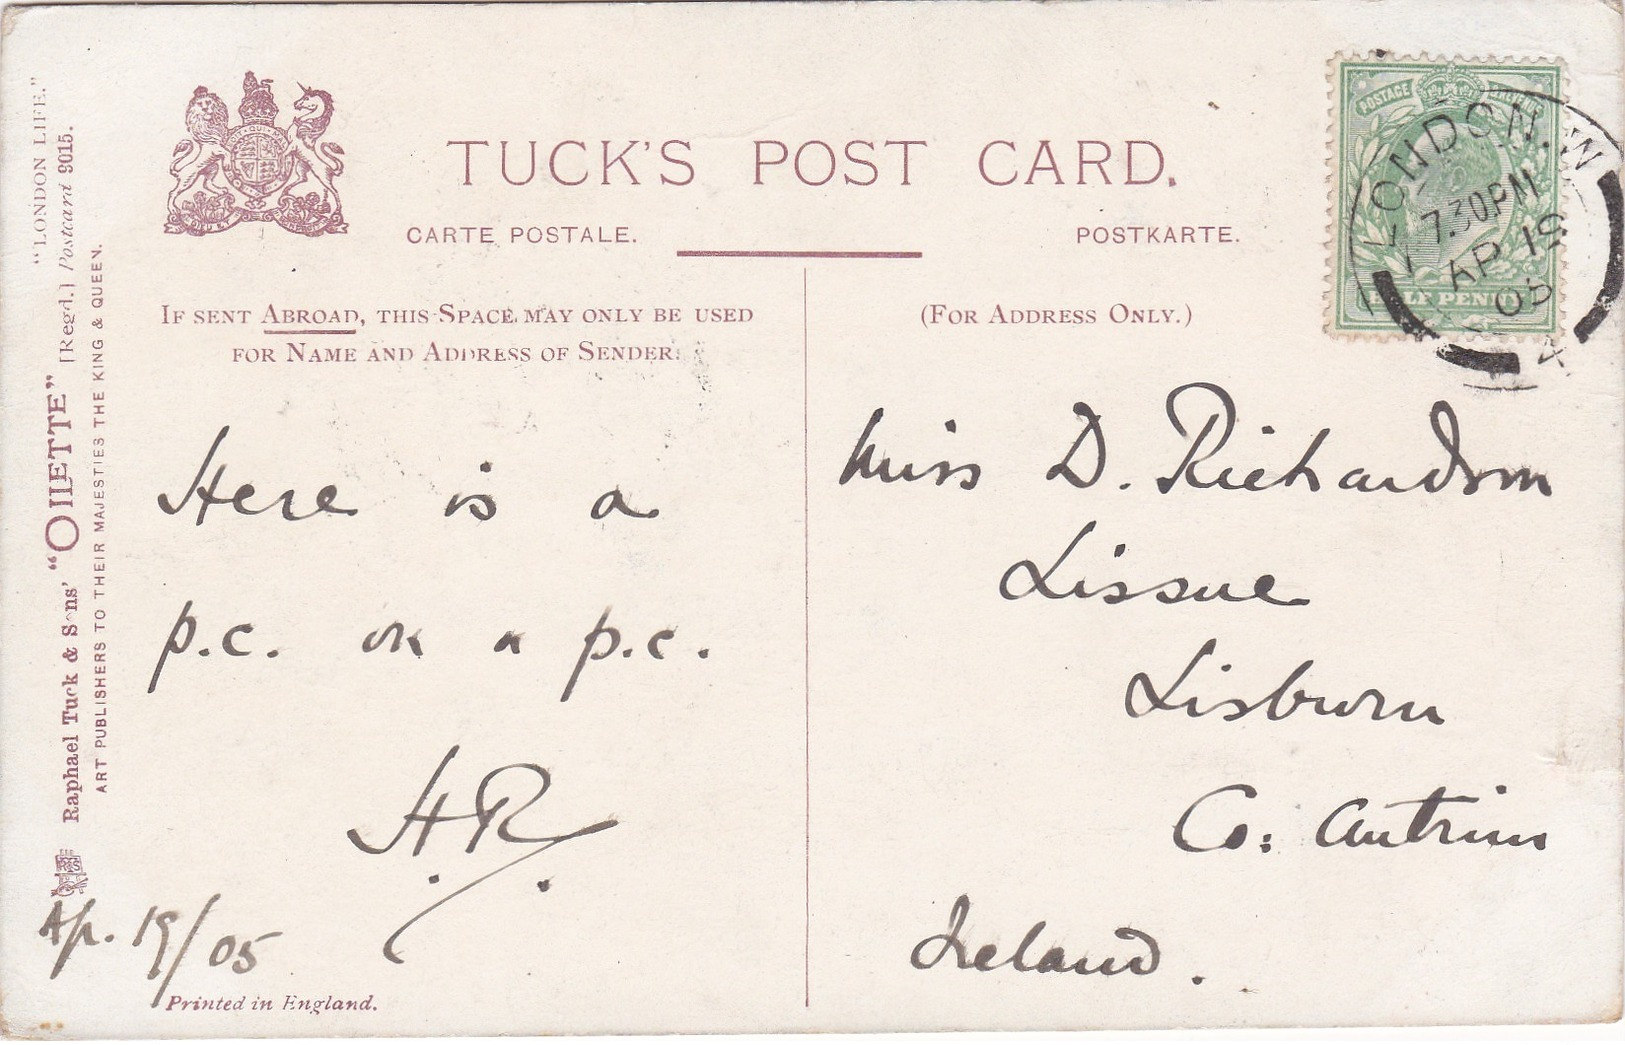 TUCK'S POST CARD.
CARTE POSTALE.
POSTKARTE.
IF SENT ABROAD, THIS SPACE MAY ONLY BE USED
FOR NAME AND ADDRESS OF SENDER.
(FOR ADDRESS ONLY.)
"LONDON LIFE."
Raphael Tuck & Sons' "OILETTE" [Regd.] Postcard 9015.
ART PUBLISHERS TO THEIR MAJESTIES THE KING & QUEEN.
POSTAGE REVENUE
HALF PENNY
LONDON. W
7.30PM
AP 19
05
4
Here is a
p.c. on a p.c.
H.R.
Ap. 19/05
Printed in England.
Miss D. Richardson
Lissue
Lisburn
Co: Antrim
Ireland.